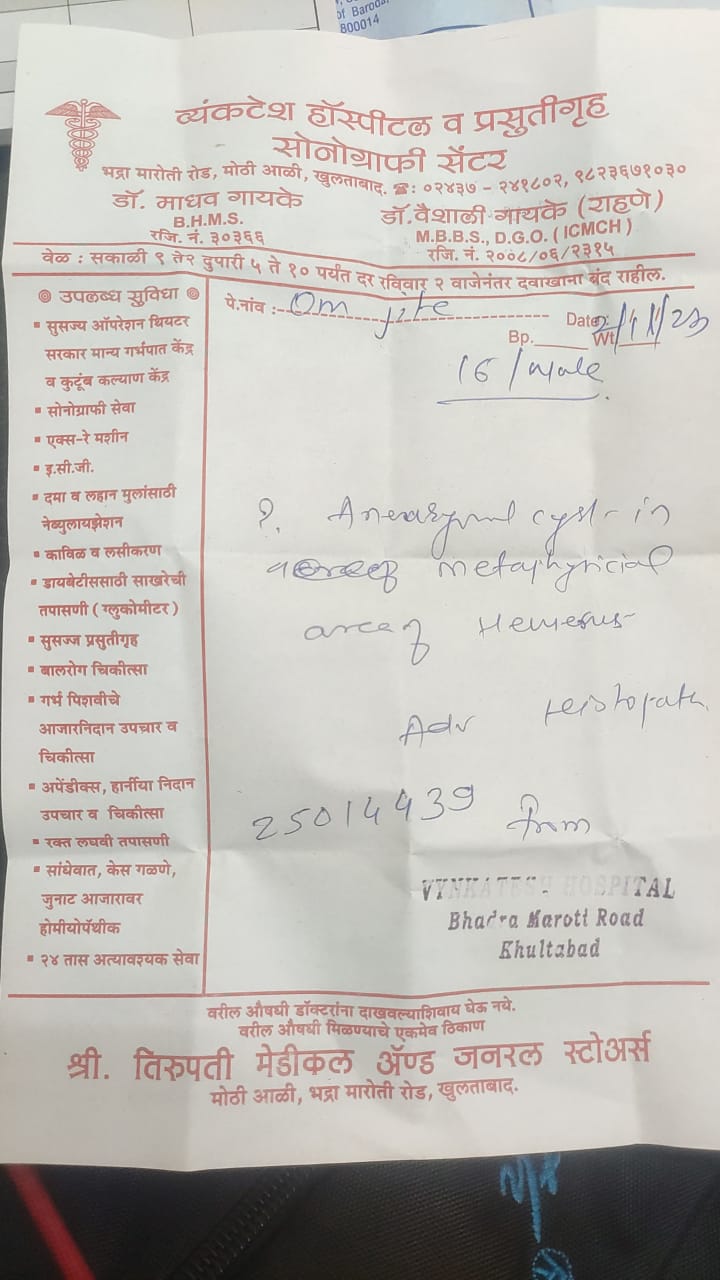 of Baroda
B00014
व्यंकटेश हॉस्पीटल व प्रसुतीगृह
सोनोग्राफी सेंटर
भद्रा मारोती रोड, मोठी आळी, खुलताबाद. ☎: ०२४३७ - २४१८०२, ९८२३६७१०३०
डॉ. माधव गायके
B.H.M.S.
रजि. नं. ३०३६६
डॉ.वैशाली गायके (राहणे)
M.B.B.S., D.G.O. ( ICMCH )
रजि. नं. २००८/०६/२३१५
वेळ : सकाळी ९ ते२ दुपारी ५ ते १० पर्यंत दर रविवार २ वाजेनंतर दवाखाना बंद राहील.
पे.नांव : Om Date
Bp. Wt
16 / Male
◎ उपलब्ध सुविधा ◎
▪ सुसज्य ऑपरेशन थियटर
सरकार मान्य गर्भपात केंद्र
व कुटूंब कल्याण केंद्र
▪ सोनोग्राफी सेवा
▪ एक्स-रे मशीन
▪ इ.सी.जी.
▪ दमा व लहान मुलांसाठी
नेब्युलायझेशन
▪ काविळ व लसीकरण
▪ डायबेटीससाठी साखरेची
तपासणी ( ग्लुकोमीटर )
▪ सुसज्ज प्रसुतीगृह
▪ बालरोग चिकीत्सा
▪ गर्भ पिशवीचे
आजारनिदान उपचार व
चिकीत्सा
▪ अपेंडीक्स, हार्नीया निदान
उपचार व चिकीत्सा
▪ रक्त लघवी तपासणी
▪ सांधेवात, केस गळणे,
जुनाट आजारावर
होमीयोपॅथीक
▪ २४ तास अत्यावश्यक सेवा
?. cyst in
area of
Adv Histopath.
25014439 from
VYNKATESH HOSPITAL
Bhadra Maroti Road
Khultabad
वरील औषधी डॉक्टरांना दाखवल्याशिवाय घेऊ नये.
वरील औषधी मिळण्याचे एकमेव ठिकाण
श्री. तिरुपती मेडीकल ॲण्ड जनरल स्टोअर्स
मोठी आळी, भद्रा मारोती रोड, खुलताबाद.